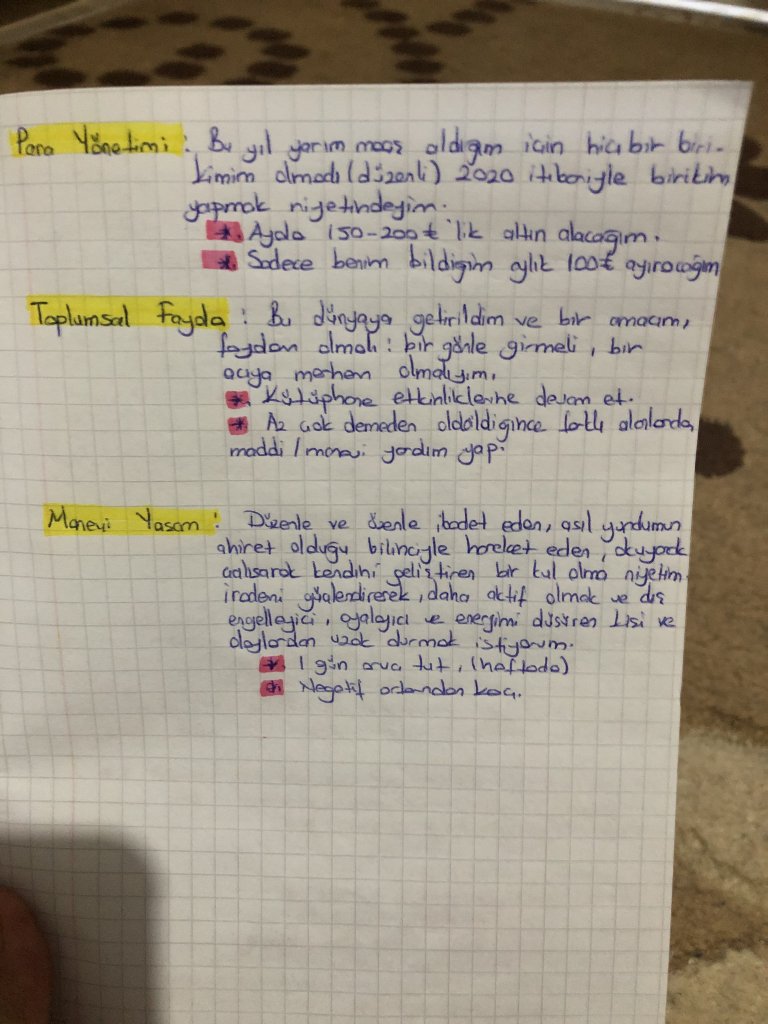 Para Yönetimi : Bu yıl yarım maaş aldığım için hiç bir biri-
kimim olmadı (düzenli) 2020 itibariyle birikim
yapmak niyetindeyim.
* Ayda 150-200₺'lik altın alacağım.
* Sadece benim bildiğim aylık 100₺ ayıracağım
Toplumsal Fayda : Bu dünyaya getirildim ve bir amacım,
faydam olmalı : bir gönle girmeli, bir
acıya merhem olmalıyım.
* Kütüphane etkinliklerine devam et.
* Az çok demeden olabildiğince farklı alanlarda,
maddi / manevi yardım yap.
Manevi Yaşam : Düzenle ve özenle ibadet eden, asıl yurdumun
ahiret olduğu bilinciyle hareket eden, okuyarak
çalışarak kendini geliştiren bir kul olma niyetim.
irademi güçlendirerek, daha aktif olmak ve dış
engelleyici, oyalayıcı ve enerjimi düşüren kişi ve
olaylardan uzak durmak istiyorum.
* 1 gün oruç tut, (haftada)
* Negatif ortamdan kaç.